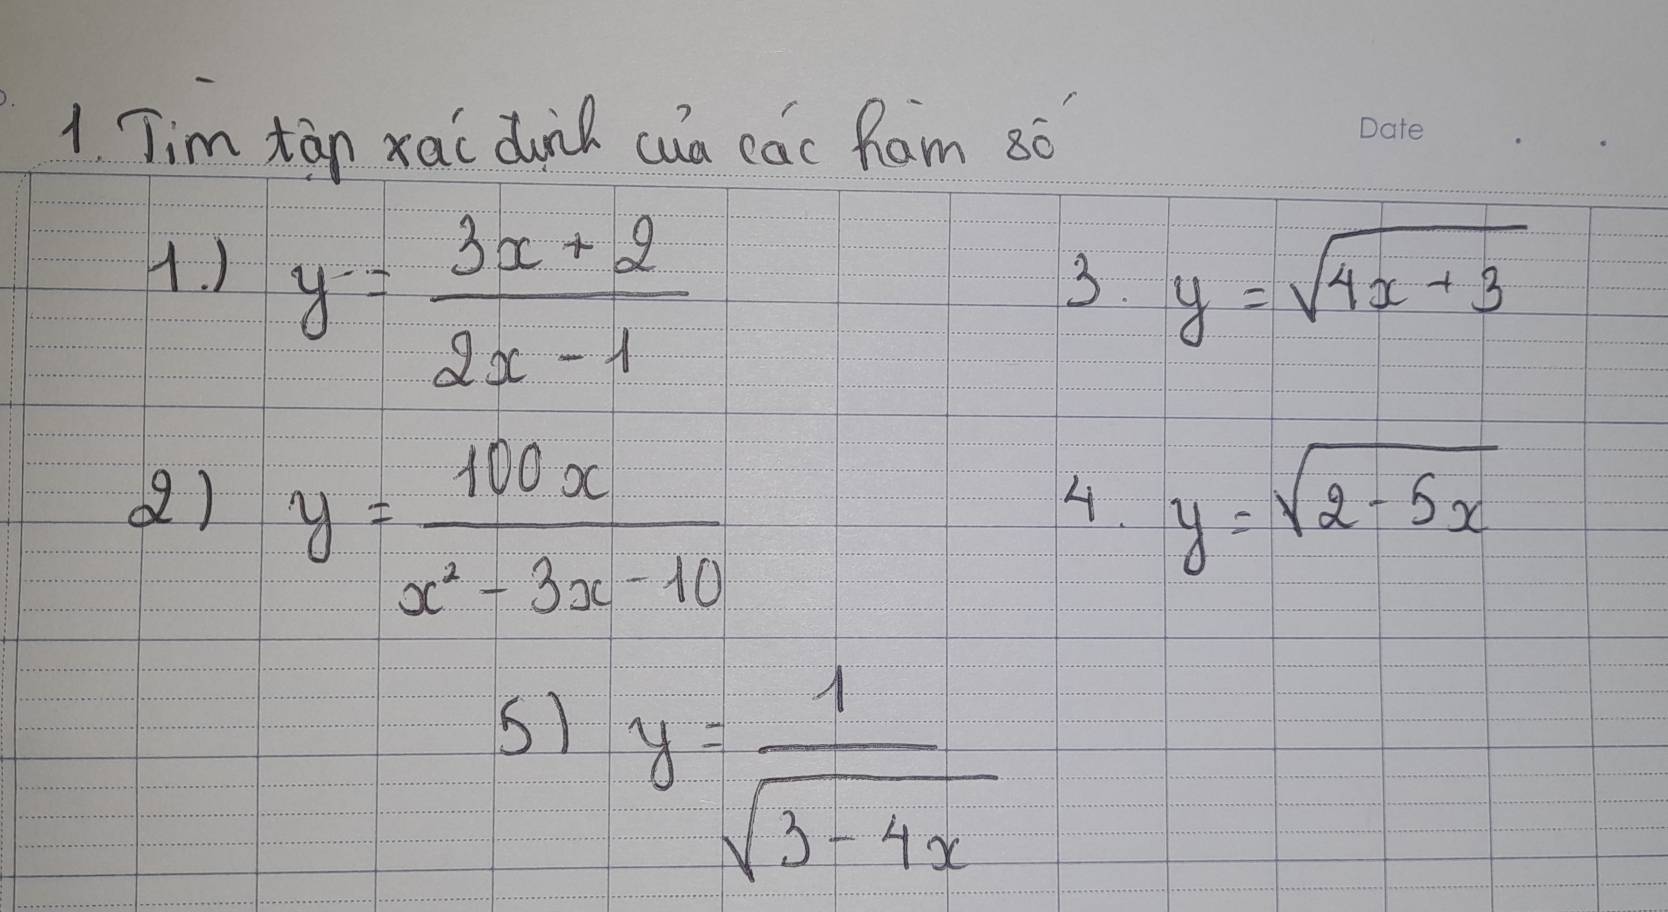 1. Tìm tập xác định của các hàm số
Date
1.) y = \frac{3x + 2}{2x - 1}
3. y = \sqrt{4x + 3}
2) y = \frac{100x}{x² - 3x - 10}
4. y = \sqrt{2 - 5x}
5) y = \frac{1}{\sqrt{3 - 4x}}